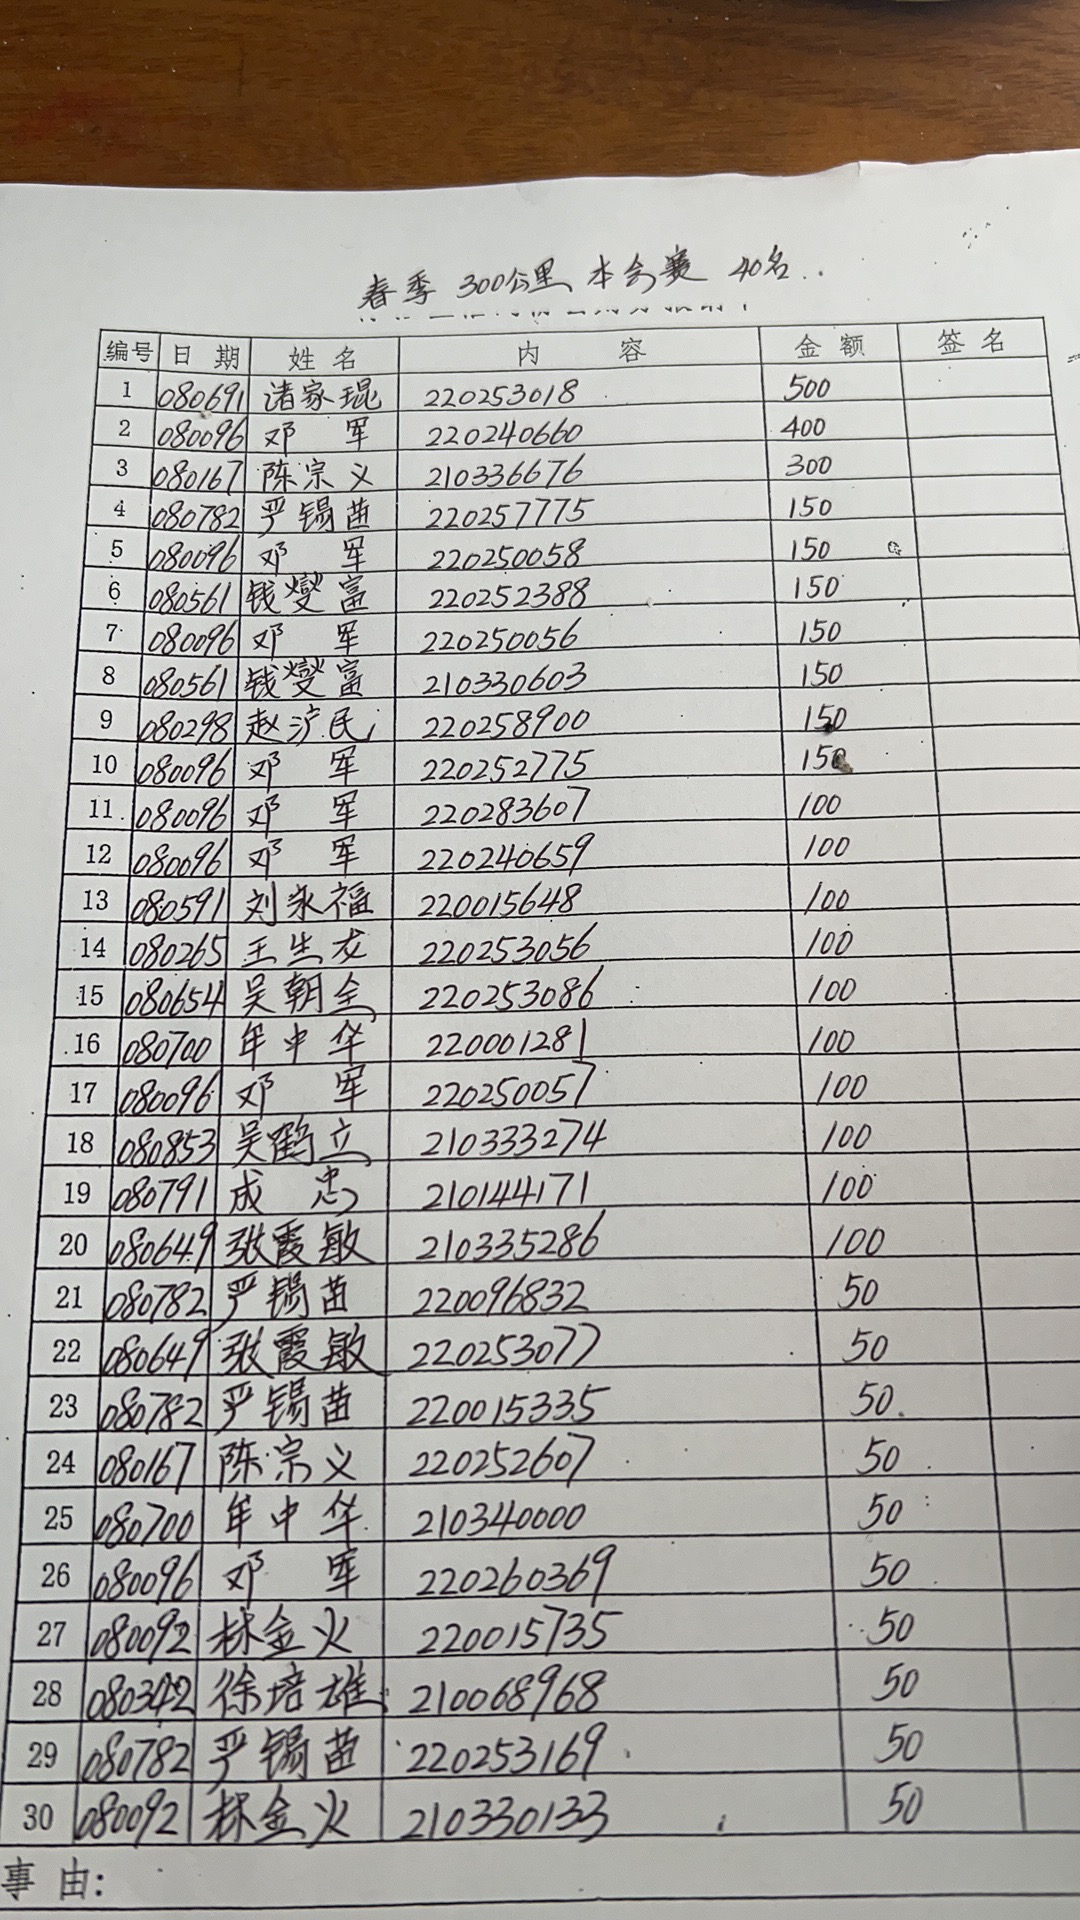 春季 300公里 本会赛 40名..
编号 日期 姓名 内容 金额 签名
1 080691 诸家琨 220253018 500
2 080096 邓军 220240660 400
3 080167 陈宗义 210336676 300
4 080782 严锡苗 220257775 150
5 080096 邓军 220250058 150
6 080561 钱燮富 220252388 150
7 080096 邓军 220250056 150
8 080561 钱燮富 210330603 150
9 080298 赵沪民 220258900 150
10 080096 邓军 220252775 150
11 080096 邓军 220283607 100
12 080096 邓军 220240659 100
13 080591 刘永福 220015648 100
14 080265 王生龙 220253056 100
15 080654 吴朝全 220253086 100
16 080700 年中华 220001281 100
17 080096 邓军 220250057 100
18 080853 吴鹤立 210333274 100
19 080791 成忠 210144171 100
20 080649 张霞敏 210335286 100
21 080782 严锡苗 220096832 50
22 080649 张霞敏 220253077 50
23 080782 严锡苗 220015335 50
24 080167 陈宗义 220252607 50
25 080700 年中华 210340000 50
26 080096 邓军 220260369 50
27 080092 林金火 220015735 50
28 080342 徐培雄 210068968 50
29 080782 严锡苗 220253169 50
30 080092 林金火 210330133 50
事由: